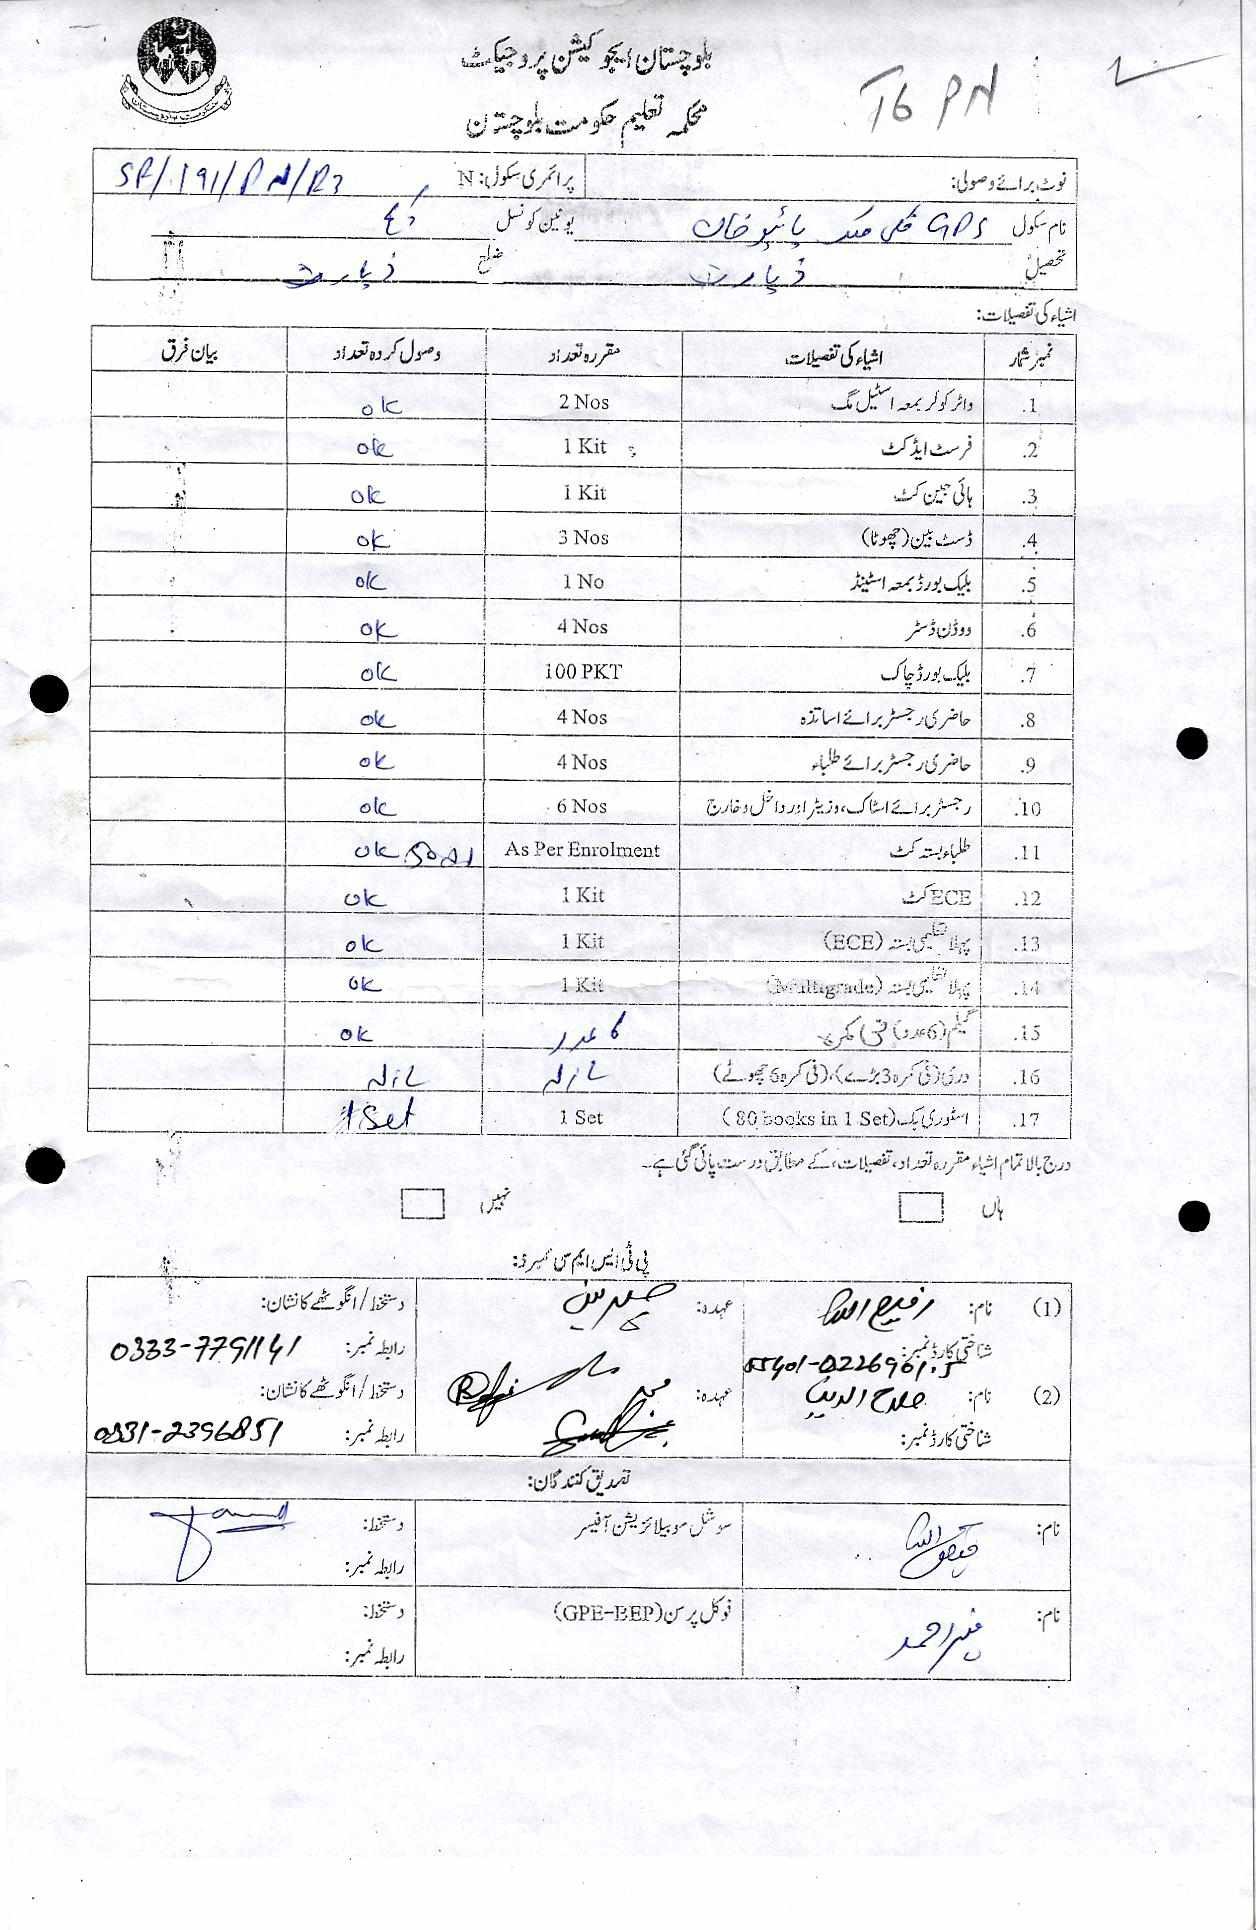 بلوچستان ایجوکیشن پروجیکٹ
محکمہ تعلیم حکومت بلوچستان
T6 PN
نوٹ برائے وصولی: پرائمری سکول: N SR/191/PN/R3
نام سکول GPS کلی ملک پائیو خان یونین کونسل
تحصیل زیارت ضلع زیارت
اشیاء کی تفصیلات:
نمبر شمار اشیاء کی تفصیلات مقررہ تعداد وصول کردہ تعداد بیان فرق
1. واٹر کولر بمعہ اسٹیل مگ 2 Nos ok
2. فرسٹ ایڈ کٹ 1 Kit ok
3. ہائی جین کٹ 1 Kit ok
4. ڈسٹ بین (چھوٹا) 3 Nos ok
5. بلیک بورڈ بمعہ اسٹینڈ 1 No ok
6. ووڈن ڈسٹر 4 Nos ok
7. بلیک بورڈ چاک 100 PKT ok
8. حاضری رجسٹر برائے اساتذہ 4 Nos ok
9. حاضری رجسٹر برائے طلباء 4 Nos ok
10. رجسٹر برائے اسٹاک، وزیٹر اور داخل و خارج 6 Nos ok
11. طلباء بستہ کٹ As Per Enrolment ok
12. ECE کٹ 1 Kit ok
13. پہلا تعلیمی بستہ (ECE) 1 Kit ok
14. پہلا تعلیمی بستہ (Multigrade) 1 Kit ok
15. گلیم (6 عدد) فی کمرہ 6 عدد ok
16. دری (فی کمرہ 3 بڑے)، (فی کمرہ 6 چھوٹے)
17. اسٹوری بک (80 books in 1 Set) 1 Set 1 Set
درج بالا تمام اشیاء مقررہ تعداد، تفصیلات، کے مطابق درست پائی گئی ہے۔
ہاں نہیں
پی ٹی ایس ایم سی ممبرز:
(1) نام: رفیع اللہ عہدہ: چیئرمین دستخط/انگوٹھے کا نشان:
شناختی کارڈ نمبر: رابطہ نمبر: 0333-7791141
(2) نام: صلاح الدین عہدہ: ممبر دستخط/انگوٹھے کا نشان:
شناختی کارڈ نمبر: رابطہ نمبر: 0331-2396851
تصدیق کنندگان:
نام: سوشل موبیلائزیشن آفیسر دستخط:
رابطہ نمبر:
نام: فوکل پرسن (GPE-BEP) دستخط:
رابطہ نمبر: